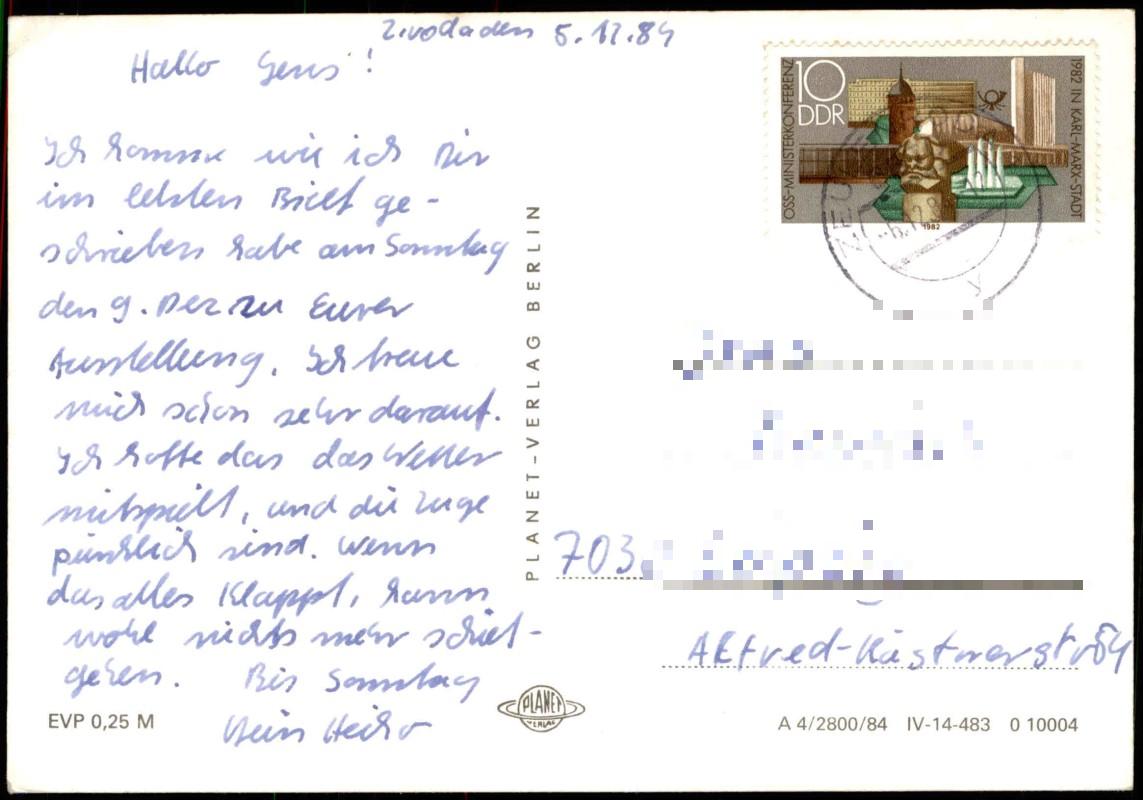 5.12.84
Hallo Jens!
Ich komme wie ich Dir
im letzten Brief ge-
schrieben habe am Sonntag
den 9. Dez zu Eurer
Ausstellung. Ich freue
mich schon sehr darauf.
Ich hoffe das das Wetter
mitspielt, und die Züge
pünktlich sind. Wenn
das alles Klappt, kann
wohl nichts mehr schief-
gehen. Bis Sonntag
Dein Heiko
EVP 0,25 M
PLANET-VERLAG BERLIN
PLANET
VERLAG
10
DDR
OSS-MINISTERKONFERENZ
1982 IN KARL-MARX-STADT
1982
703
Alfred-Kästnerstr 84
A 4/2800/84 IV-14-483 0 10004